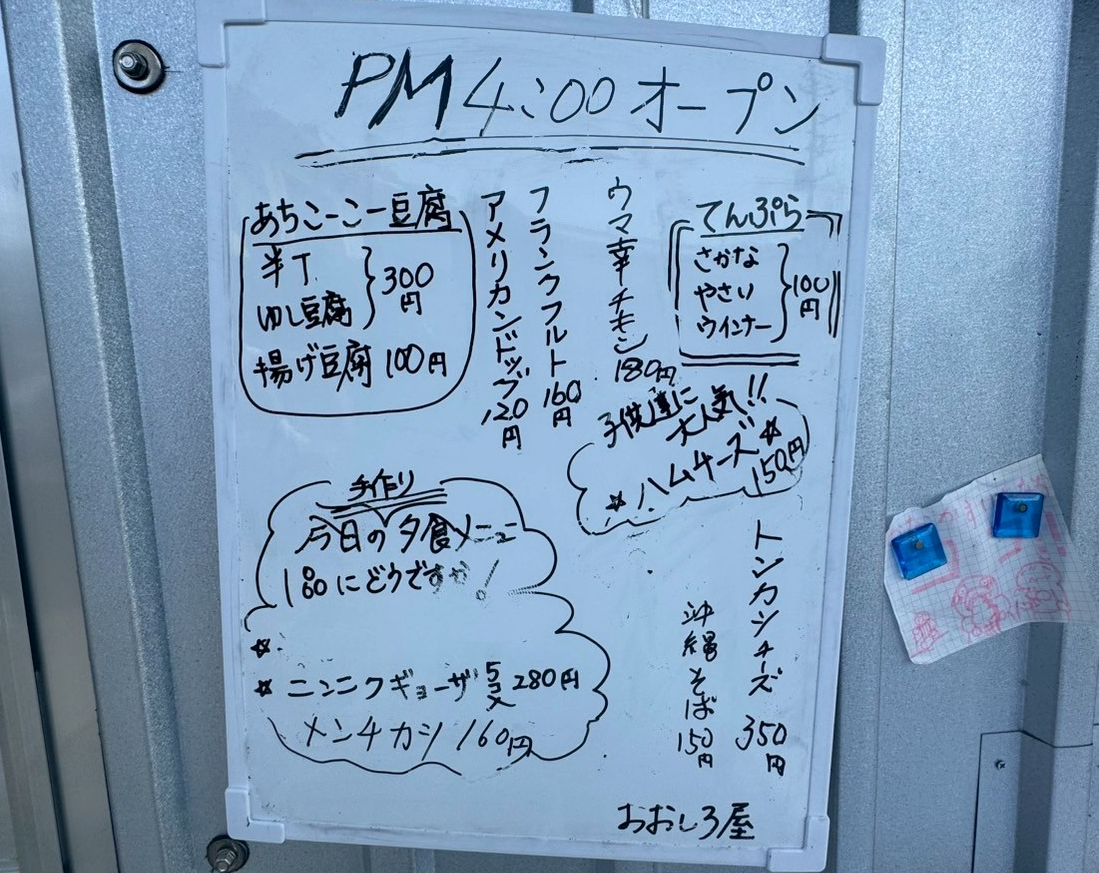 PM 4:00 オープン
てんぷら
さかな
やさい
ウインナー
100円
ウマ辛チキン 180円
フランクフルト 160円
アメリカンドッグ 120円
あちこーこー豆腐
半丁
ゆし豆腐
300円
揚げ豆腐 100円
子供達に
大人気!!
☆ハムチーズ☆
150円
手作り
今日の夕食メニュー
1品にどうですか!
☆
☆ ニンニクギョーザ 5コ入 280円
メンチカツ 160円
トンカツチーズ 350円
沖縄そば 150円
おおしろ屋